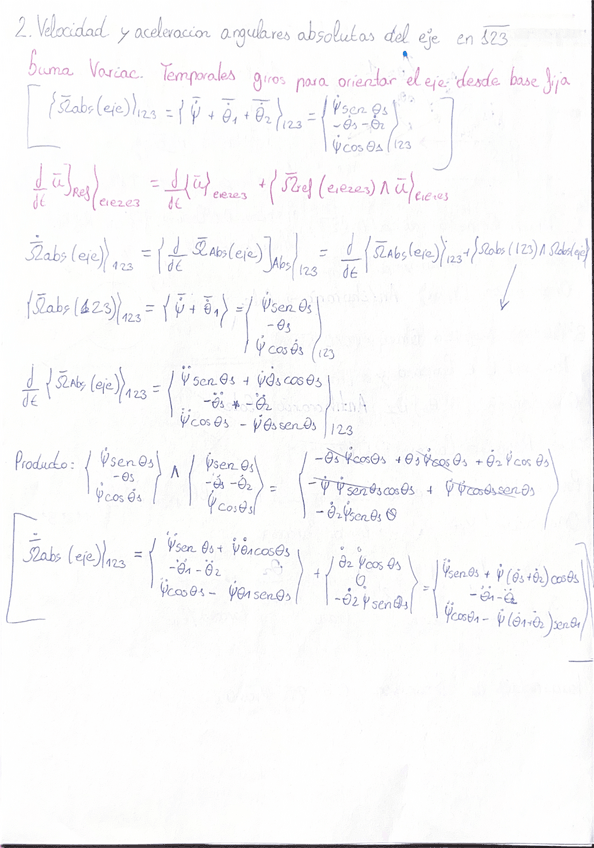 2. Velocidad y aceleracion angulares absolutas del eje en 123
Suma Variac. Temporales giros para orientar el eje desde base fija
[{Ω̄abs(eje)}₁₂₃ = {ψ̇̄ + θ̇̄₁ + θ̇̄₂}₁₂₃ = {ψ̇senθ₁ ; -θ̇₁-θ̇₂ ; ψ̇cosθ₁}₁₂₃]
d/dt ū]Ref}e1e2e3 = d/dt{ū}e1e2e3 + {Ω̄ref(e1e2e3) ∧ ū}e1e2e3
Ω̄̇abs(eje)}₁₂₃ = {d/dt Ω̄Abs(eje)]Abs}₁₂₃ = d/dt{Ω̄Abs(eje)}₁₂₃ + {Ωabs(123) ∧ Ωabs(eje)}
{Ω̄abs(123)}₁₂₃ = {ψ̇̄ + θ̇̄₁} = {ψ̇senθ₁ ; -θ̇₁ ; ψ̇cosθ₁}₁₂₃
d/dt{Ω̄Abs(eje)}₁₂₃ = {ψ̈senθ₁ + ψ̇θ̇₁cosθ₁ ; -θ̈₁ - θ̈₂ ; ψ̈cosθ₁ - ψ̇θ̇₁senθ₁}₁₂₃
Producto: {ψ̇senθ₁ ; -θ̇₁ ; ψ̇cosθ₁} ∧ {ψ̇senθ₁ ; -θ̇₁-θ̇₂ ; ψ̇cosθ₁} = {-θ̇₁ψ̇cosθ₁ + θ̇₁ψ̇cosθ₁ + θ̇₂ψ̇cosθ₁ ; -ψ̇ψ̇senθ₁cosθ₁ + ψ̇ψ̇cosθ₁senθ₁ ; -θ̇₂ψ̇senθ₁}
[Ω̄̇abs(eje)}₁₂₃ = {ψ̈senθ₁ + ψ̇θ̇₁cosθ₁ ; -θ̈₁-θ̈₂ ; ψ̈cosθ₁ - ψ̇θ̇₁senθ₁} + {θ̇₂ψ̇cosθ₁ ; 0 ; -θ̇₂ψ̇senθ₁} = {ψ̈senθ₁ + ψ̇(θ̇₁+θ̇₂)cosθ₁ ; -θ̈₁-θ̈₂ ; ψ̈cosθ₁ - ψ̇(θ̇₁+θ̇₂)senθ₁}]